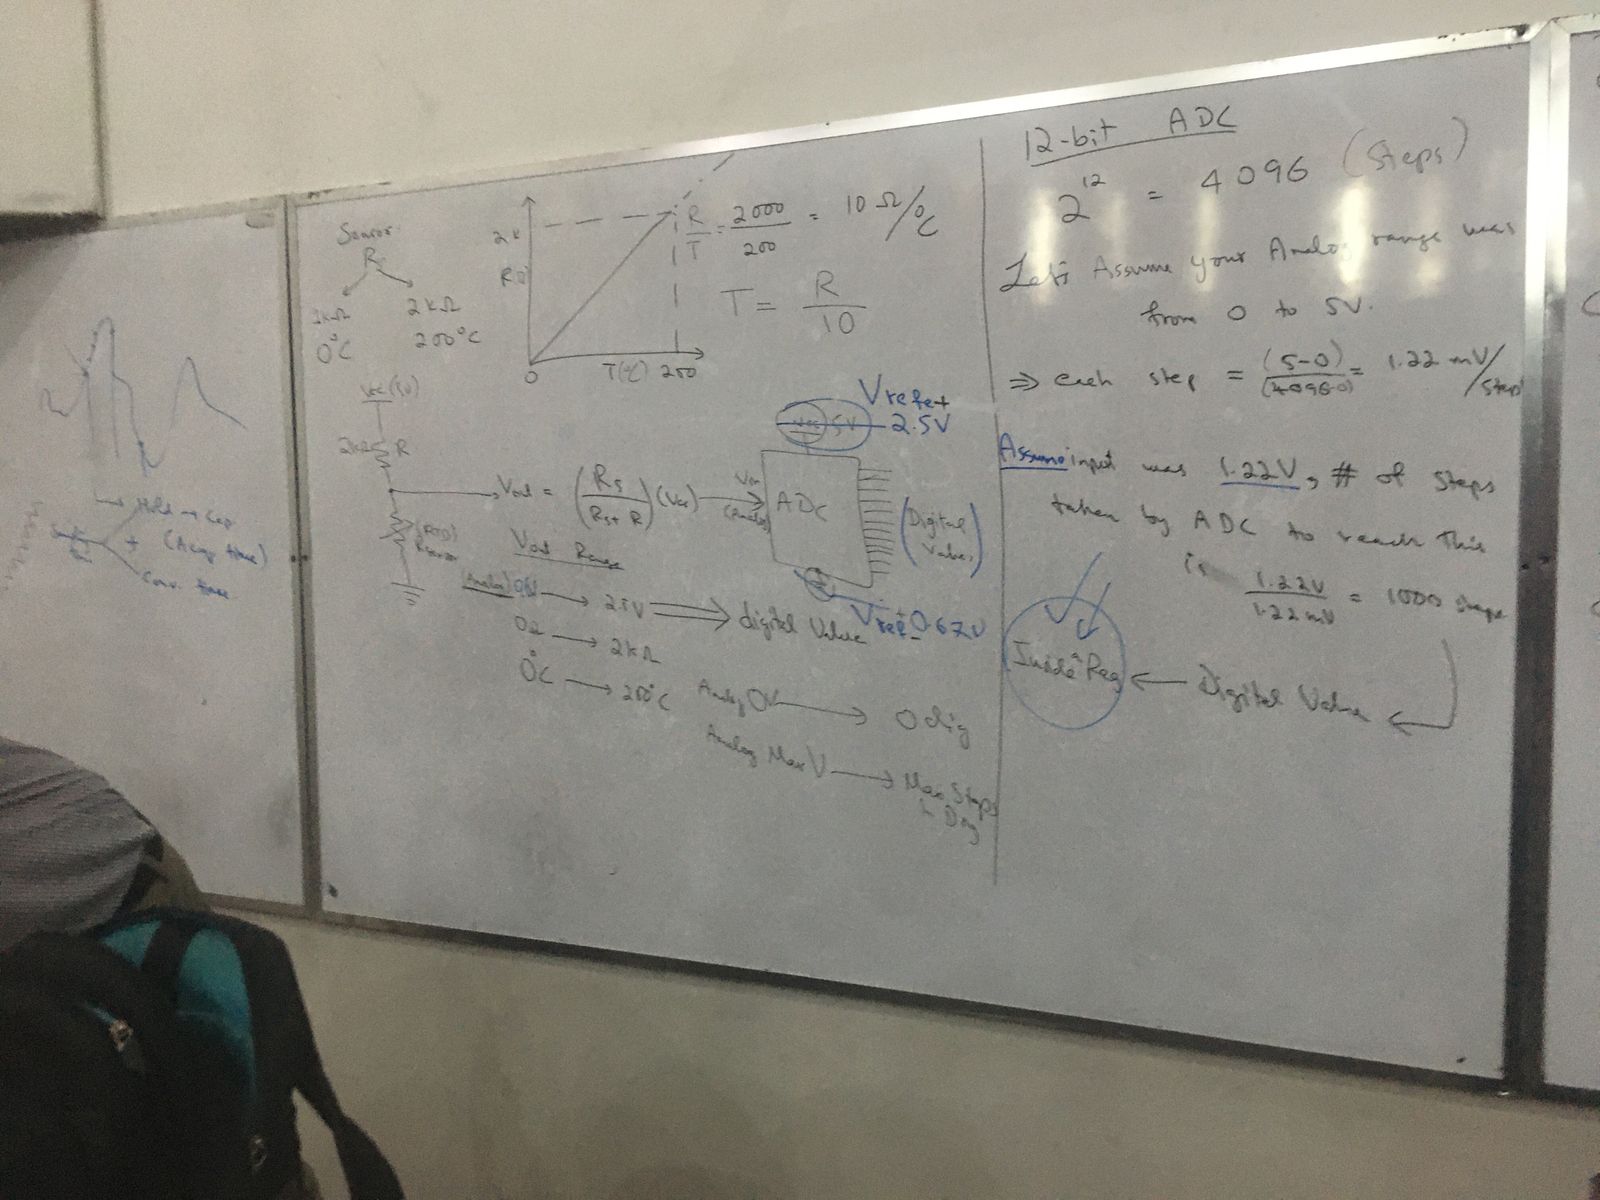 Hold → Cap
+
(Acq. time)
Conv. time
Sensor
Rs
1kΩ
2kΩ
0°C
200°C
2k
0
T(°C)
200
R/T = 2000/200 = 10 Ω/°C
T = R/10
Vcc(5v)
2kΩ R
(RTD)
Rsensor
Vout = (Rs/(Rs+R)) (Vcc)
Vin
(Analog)
ADC
5V
Vref+
2.5V
(Digital Value)
Vref- 0.67V
Vout Range
Analog → 2.5V ⇒ digital Value
0Ω → 2kΩ
0°C → 200°C
Analog 0V → 0 dig
Analog Max V → Max Steps
in Dig
12-bit ADC
2^12 = 4096 (Steps)
Let's Assume your Analog range was
from 0 to 5V.
⇒ each step = (5-0)/(4096-0) = 1.22 mV/Step
Assume input was 1.22V, # of Steps
taken by ADC to reach This
is 1.22V/1.22mV = 1000 steps
Inside Reg ← Digital Value